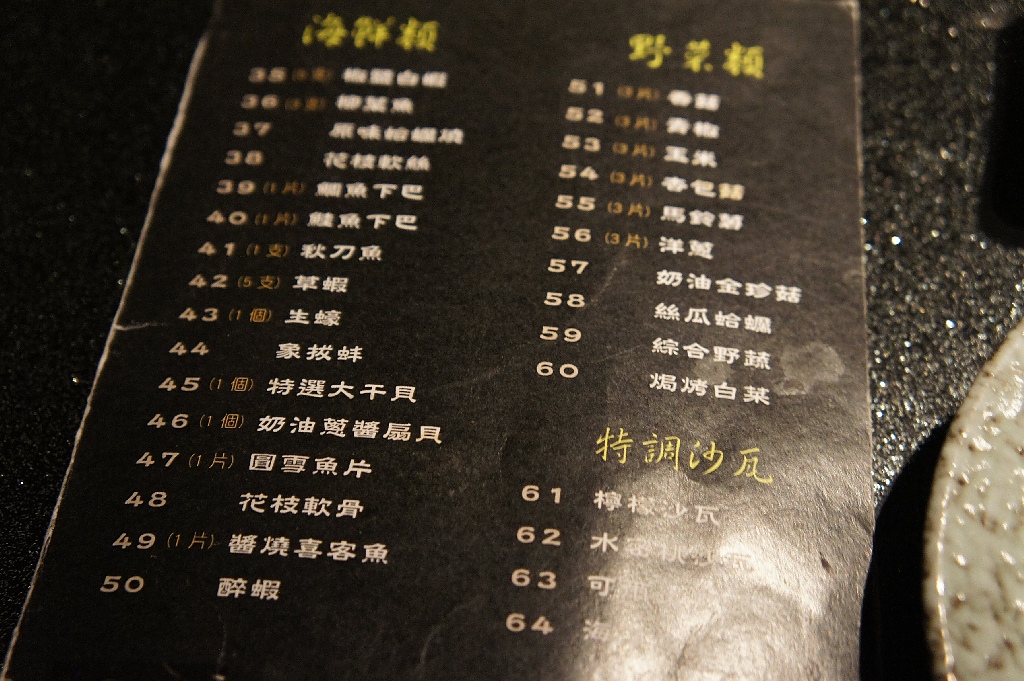 海鮮類
35 白蝦
36 柳葉魚
37 原味蛤蠣燒
38 花枝軟絲
39 (1片) 鯛魚下巴
40 (1片) 鮭魚下巴
41 (1支) 秋刀魚
42 (5支) 草蝦
43 (1個) 生蠔
44 象拔蚌
45 (1個) 特選大干貝
46 (1個) 奶油蔥醬扇貝
47 (1片) 圓雪魚片
48 花枝軟骨
49 (1片) 醬燒喜客魚
50 醉蝦
野菜類
51 (3片) 香菇
52 (3片) 青椒
53 (3片) 玉米
54 (3片) 杏包菇
55 (3片) 馬鈴薯
56 (3片) 洋蔥
57 奶油金珍菇
58 絲瓜蛤蠣
59 綜合野蔬
60 焗烤白菜
特調沙瓦
61 檸檬沙瓦
62 水
63 可
64 海